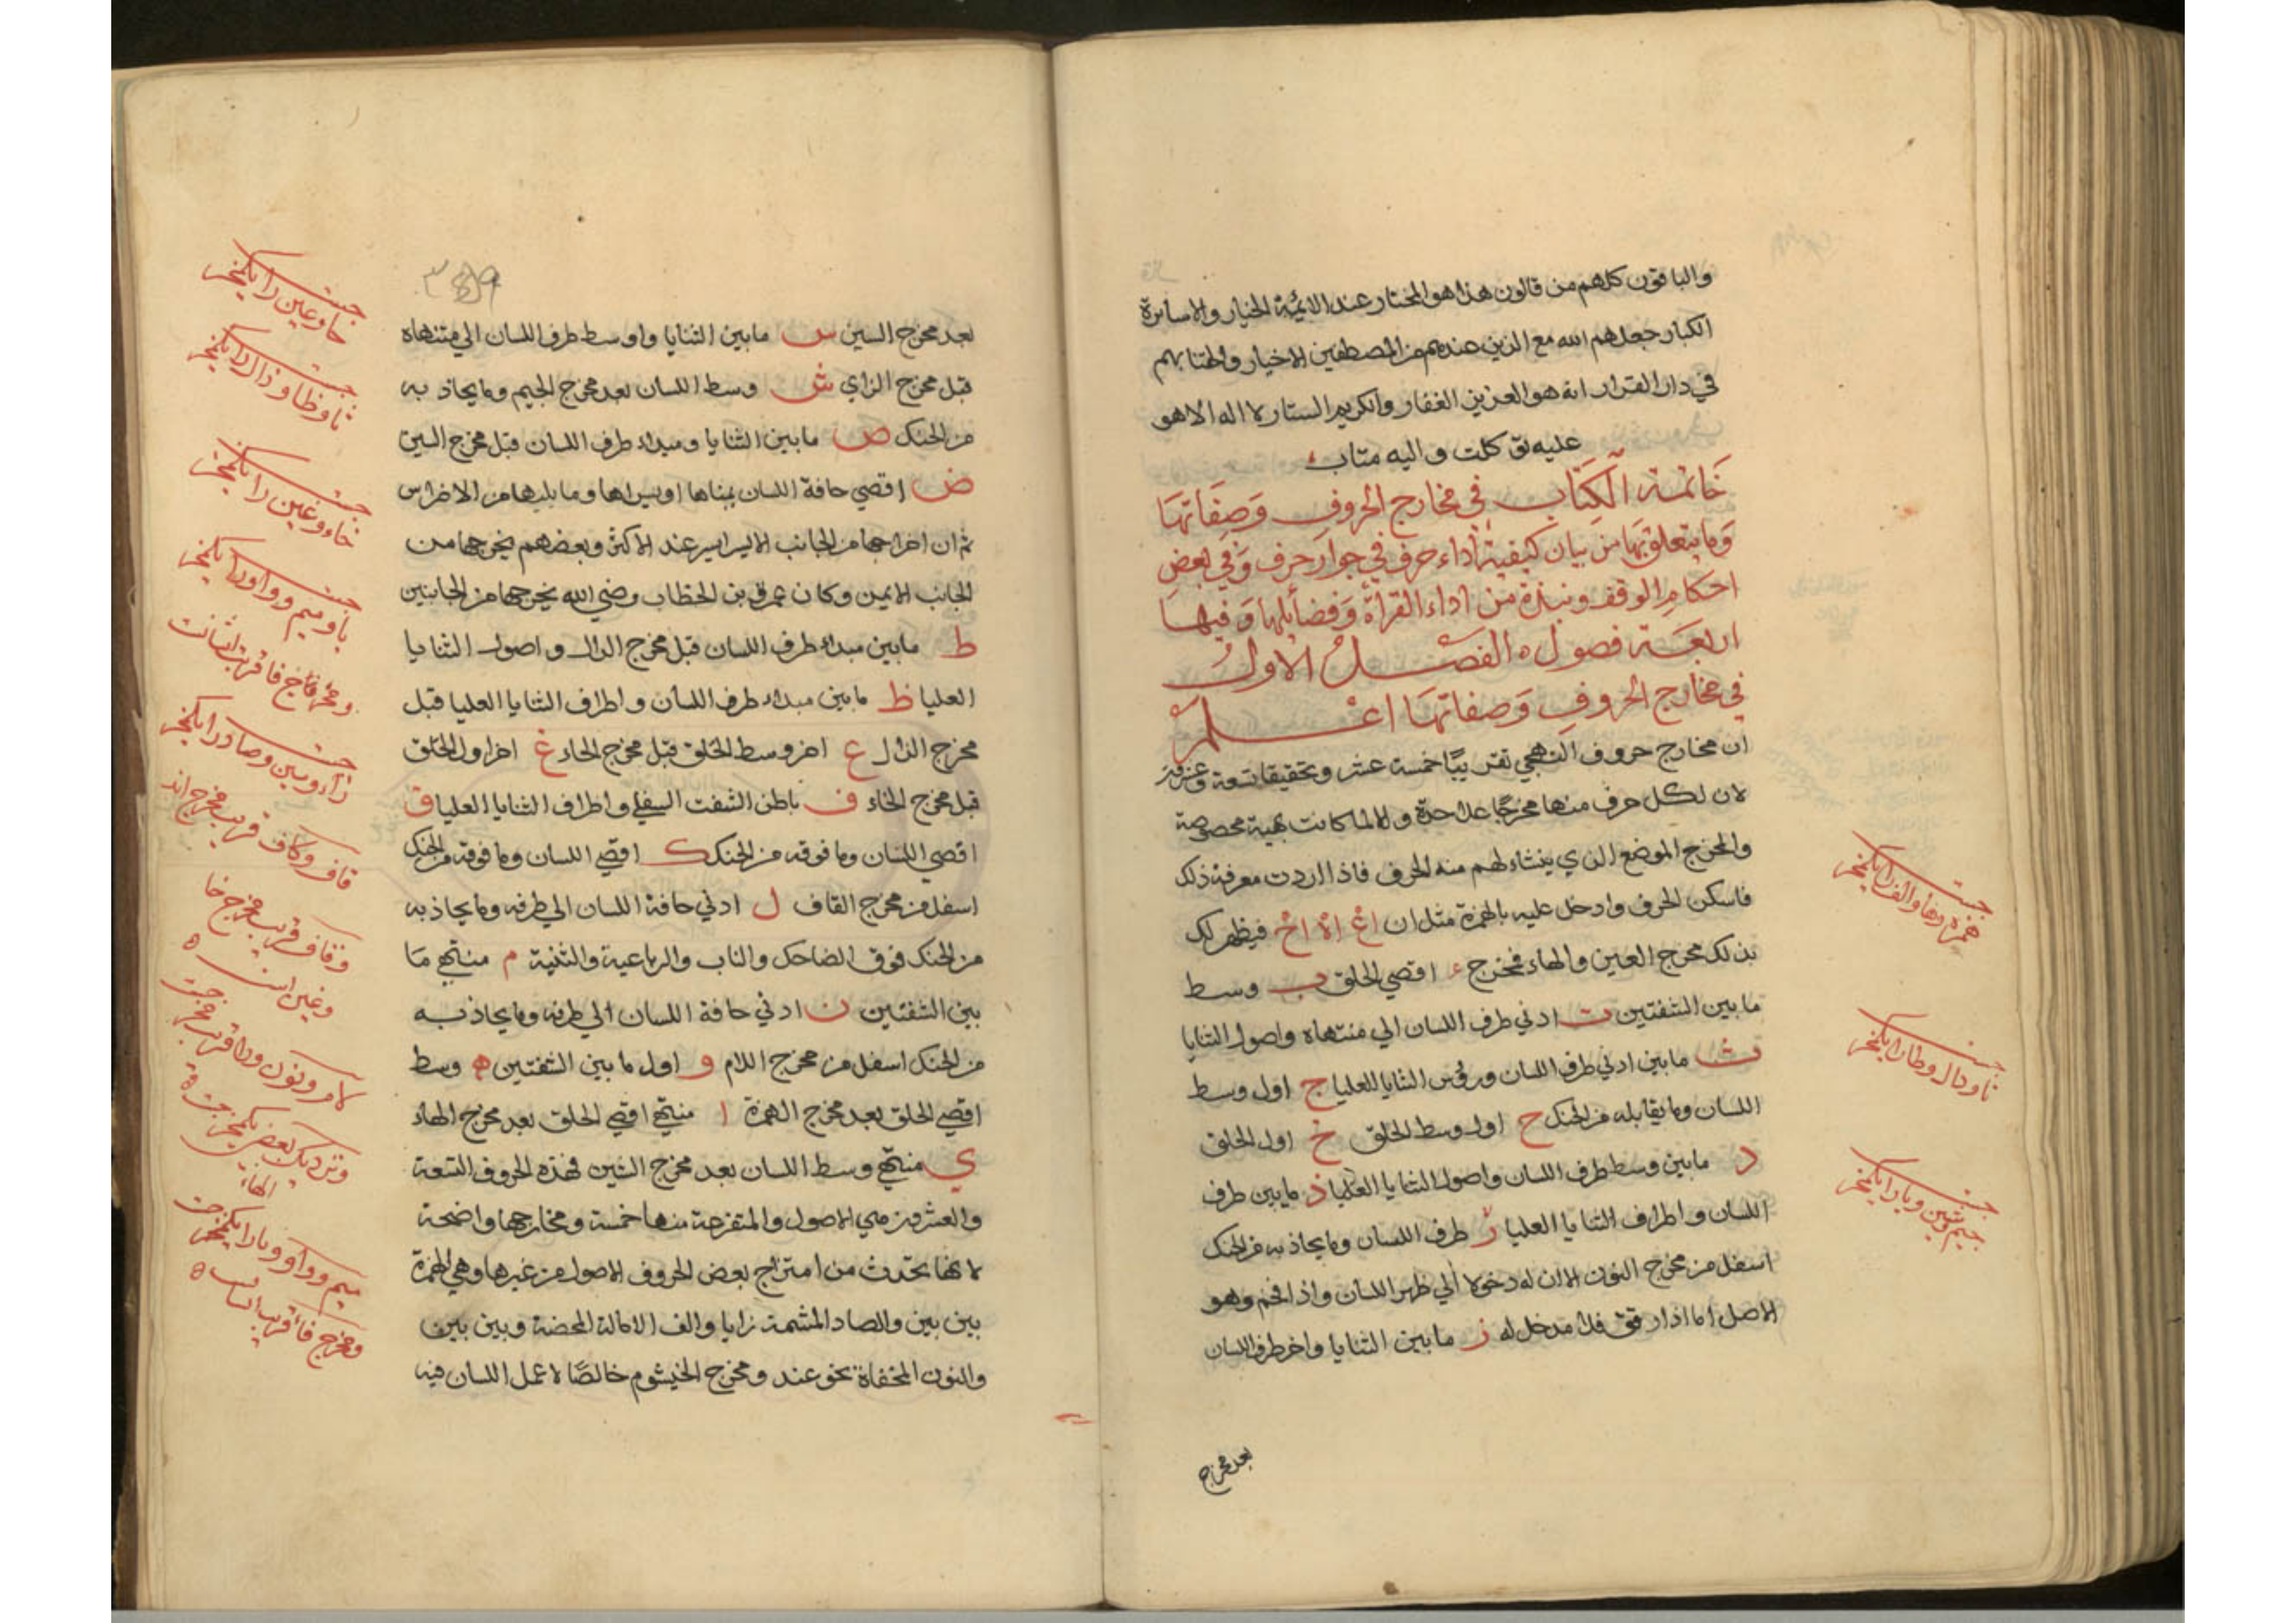 والباقون كلهم من قالون هذا هو المختار عند الائمة الخيار والاساتزة
الكبار جعلهم الله مع الذين عندهم من المصطفين الاخيار والحقنا بهم
في دار القرار انه هو العزيز الغفار والكريم الستار لا اله الا هو
عليه توكلت واليه متاب
خاتمة الكتاب في مخارج الحروف وصفاتها
وما يتعلق بها من بيان كيفية اداء حرف في جوار حرف وفي بعض
احكام الوقف ونبذة من اداء القراة وفضائلها وفيها
اربعة فصول ه الفصل الاول
في مخارج الحروف وصفاتها اعلم
ان مخارج حروف التهجي تقريبًا خمسة عشر وتحقيقا تسعة وعشرون
لان لكل حرف منها مخرجًا علاحدة والا لما كانت بهيئة مخصوصة
والمخرج الموضع الذي ينشاء لهم منه الحرف فاذا اردت معرفة ذلك
فاسكن الحرف وادخل عليه بالهمزة مثل ان اغ اه اخ فيظهر لك
بذلك مخرج العين والهاء فمخرج ء اقصي الحلق ب وسط
ما بين الشفتين ت ادني طرف اللسان الي منتهاه واصول الثنايا
ث ما بين ادني طرف اللسان ورؤس الثنايا العليا ج اول وسط
اللسان وما يقابله من الحنك ح اول وسط الحلق خ اول الحلق
د ما بين وسط طرف اللسان واصول الثنايا العليا ذ ما بين طرف
اللسان واطراف الثنايا العليا ر طرف اللسان وما يحاذ به من الحنك
اسفل من مخرج النون الا ان له دخولا الي ظهر اللسان واذا فخم وهو
الاصل اما اذا رقق فلا مدخل له ز ما بين الثنايا واخر طرف اللسان
بعد مخرج
همزه وها والف را يكمخر جست
تا ودال وطا را يكمخر جست
جيم وشين ويا را يكمخر جست
بعد مخرج السين س ما بين الثنايا واوسط طرف اللسان الي منتهاه
قبل مخرج الزاي ش وسط اللسان بعد مخرج الجيم وما يحاذ به
من الحنك ص ما بين الثنايا ومبداء طرف اللسان قبل مخرج السين
ض اقصي حافة اللسان يمناها او يسراها وما يليها من الاضراس
ثم ان اخراجها من الجانب الايسر ايسر عند الاكثر وبعضهم يخرجها من
الجانب الايمن وكان عمر بن الخطاب رضي الله يخرجها من الجانبين
ط ما بين مبداء طرف اللسان قبل مخرج الدال واصول الثنايا
العليا ظ ما بين مبداء طرف اللسان واطراف الثنايا العليا قبل
مخرج الذال ع اخر وسط الحلق قبل مخرج الحاء غ اخر اول الحلق
قبل مخرج الخاء ف باطن الشفت السفلي واطراف الثنايا العليا ق
اقصي اللسان وما فوقه من الحنك ك اقصي اللسان وما فوقه من الحنك
اسفل من مخرج القاف ل ادني حافة اللسان الي طرفه وما يحاذ به
من الحنك فوق الضاحك والناب والرباعية والثنية م منتهي ما
بين الشفتين ن ادني حافة اللسان الي طرفه وما يحاذ به
من الحنك اسفل من مخرج اللام و اول ما بين الشفتين ه وسط
اقصي الحلق بعد مخرج الهمزة ا منتهي اقصي الحلق بعد مخرج الهاء
ي منتهي وسط اللسان بعد مخرج الشين فهذه الحروف التسعة
والعشرون هي الاصول والمتفرعة منها خمسة ومخارجها واضحة
لانها تحدث من امتزاج بعض الحروف الاصول من غيرها وهي الهمزة
بين بين والصاد المشمة زايا والف الامالة المحضة وبين بين
والنون المخفاة نحو عند ومخرج الخيشوم خالصًا لا عمل اللسان فيه
حا وعين را يكمخر جست
ثا وظا وذال را يكمخر جست
خاء وغين را يكمخر جست
با وميم وواو را يكمخر جست
زاء وسين وصاد را يكمخر جست
قاف وكاف قريب مخرج اند
وقاف قريب مخرج خا
وغين است ه
لام ونون ورا قريب مخرجست
ميم وواو وبا را يكمخر جست
ومخرج فا قريب انسات ه